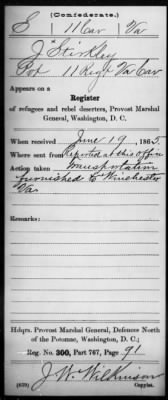 (Confederate.)
S 11 Cav Va
J Stickley
Pvt 11 Regt Va Cav
Appears on a
Register
of refugees and rebel deserters, Provost Marshal
General, Washington, D. C.
When received June 19, 1865.
Where sent from Reported at this office
Action taken Transportation
furnished to Winchester
Va.
Remarks:
Hdqrs. Provost Marshal General, Defences North
of the Potomac, Washington, D. C.;
Reg. No. 300, Part 767, Page 91
J. W. Wilkinson
(639) Copyist.